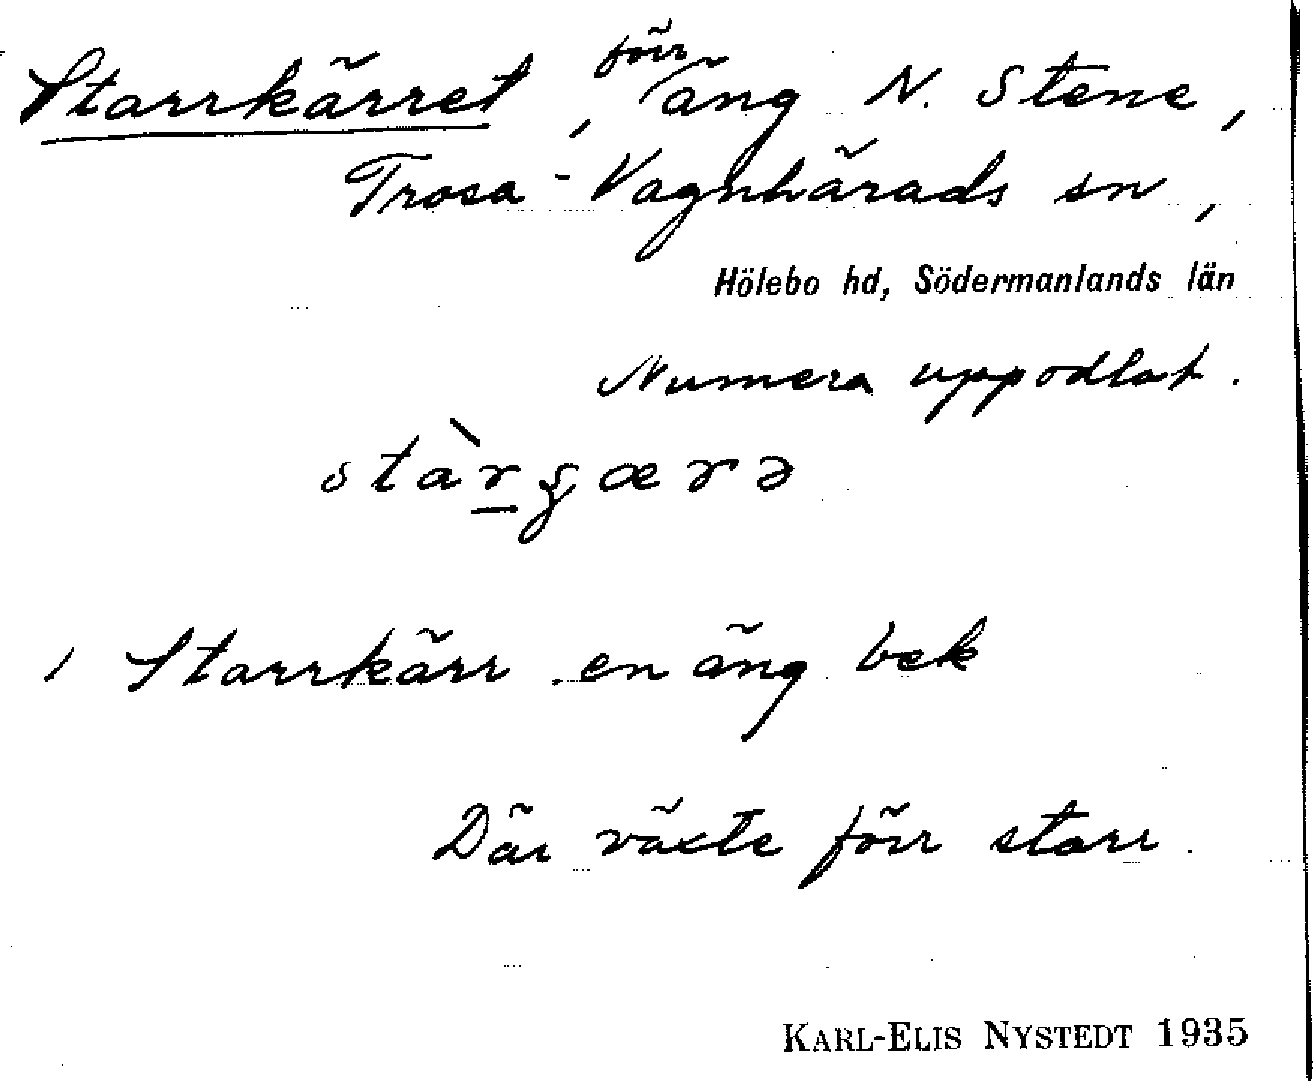 Starrkärret, förr äng N. Stene,
Trosa-Vagnhärads sn,
Hölebo hd, Södermanlands län
Numera uppodlat.
1 Starrkärr en äng bek
Där växte förr starr.
KARL-ELIS NYSTEDT 1935